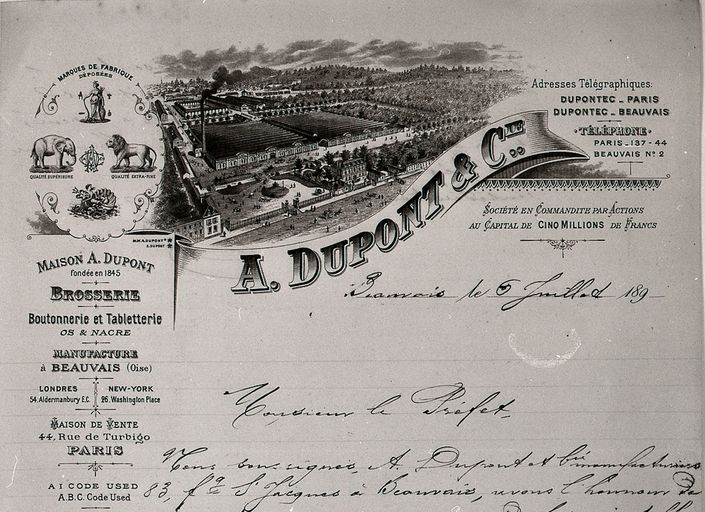 MARQUES DE FABRIQUE
DÉPOSÉES
QUALITÉ SUPÉRIEURE
QUALITÉ EXTRA-FINE
A. DUPONT & CIE
Adresses Télégraphiques:
DUPONTEC _ PARIS
DUPONTEC _ BEAUVAIS
TÉLÉPHONE
PARIS_137-44
BEAUVAIS No 2
SOCIÉTÉ EN COMMANDITE PAR ACTIONS
AU CAPITAL DE CINQ MILLIONS DE FRANCS
MAISON A. DUPONT
fondée en 1845
BROSSERIE
Boutonnerie et Tabletterie
OS & NACRE
MANUFACTURE
à BEAUVAIS (Oise)
LONDRES
54, Aldermanbury E.C.
NEW-YORK
26, Washington Place
MAISON DE VENTE
44, Rue de Turbigo
PARIS
A I CODE USED
A.B.C. Code Used
Beauvais le 6 Juillet 189
Monsieur le Préfet,
Nous soussignés A. Dupont et Cie manufacturiers
83, fg St Jacques à Beauvais, avons l'honneur de